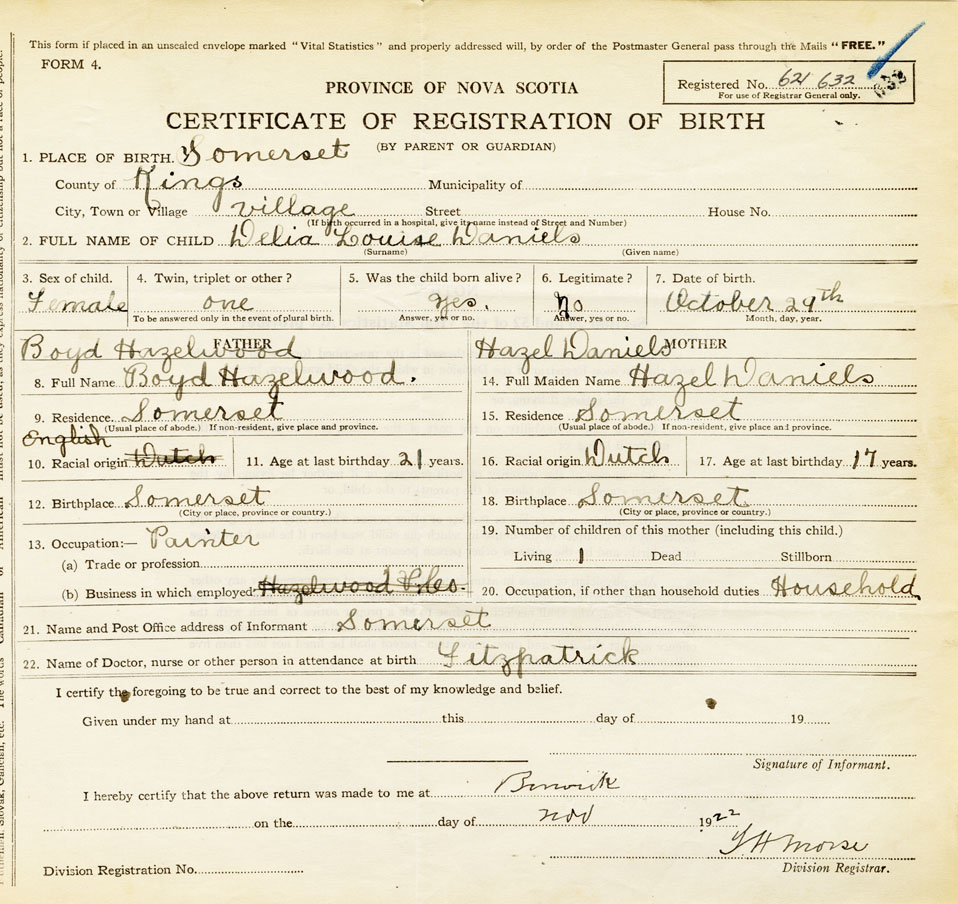 This form if placed in an unsealed envelope marked "Vital Statistics" and properly addressed will, by order of the Postmaster General pass through the Mails "FREE."
FORM 4.
Registered No. 621 632
For use of Registrar General only.
PROVINCE OF NOVA SCOTIA
CERTIFICATE OF REGISTRATION OF BIRTH
(BY PARENT OR GUARDIAN)
1. PLACE OF BIRTH. Somerset
County of Kings Municipality of
City, Town or Village village Street House No.
(If birth occurred in a hospital, give its name instead of Street and Number)
2. FULL NAME OF CHILD Delia Louise Daniels
(Surname) (Given name)
3. Sex of child. 4. Twin, triplet or other? 5. Was the child born alive? 6. Legitimate? 7. Date of birth.
Female one yes. No October 29th
To be answered only in the event of plural birth. Answer, yes or no. Answer, yes or no. Month, day, year.
Boyd Hazelwood FATHER Hazel Daniels MOTHER
8. Full Name Boyd Hazelwood. 14. Full Maiden Name Hazel Daniels
9. Residence. Somerset 15. Residence Somerset
(Usual place of abode.) If non-resident, give place and province. (Usual place of abode.) If non-resident, give place and province.
English
10. Racial origin Dutch 11. Age at last birthday 21 years. 16. Racial origin Dutch 17. Age at last birthday 17 years.
12. Birthplace Somerset 18. Birthplace Somerset
(City or place, province or country.) (City or place, province or country.)
13. Occupation:— Painter 19. Number of children of this mother (including this child.)
(a) Trade or profession Living 1 Dead Stillborn
(b) Business in which employed Hazelwood 20. Occupation, if other than household duties Household
21. Name and Post Office address of Informant Somerset
22. Name of Doctor, nurse or other person in attendance at birth Fitzpatrick
I certify the foregoing to be true and correct to the best of my knowledge and belief.
Given under my hand at this day of 19
Signature of Informant.
I hereby certify that the above return was made to me at Berwick
on the day of Nov 1922
Morse
Division Registration No. Division Registrar.